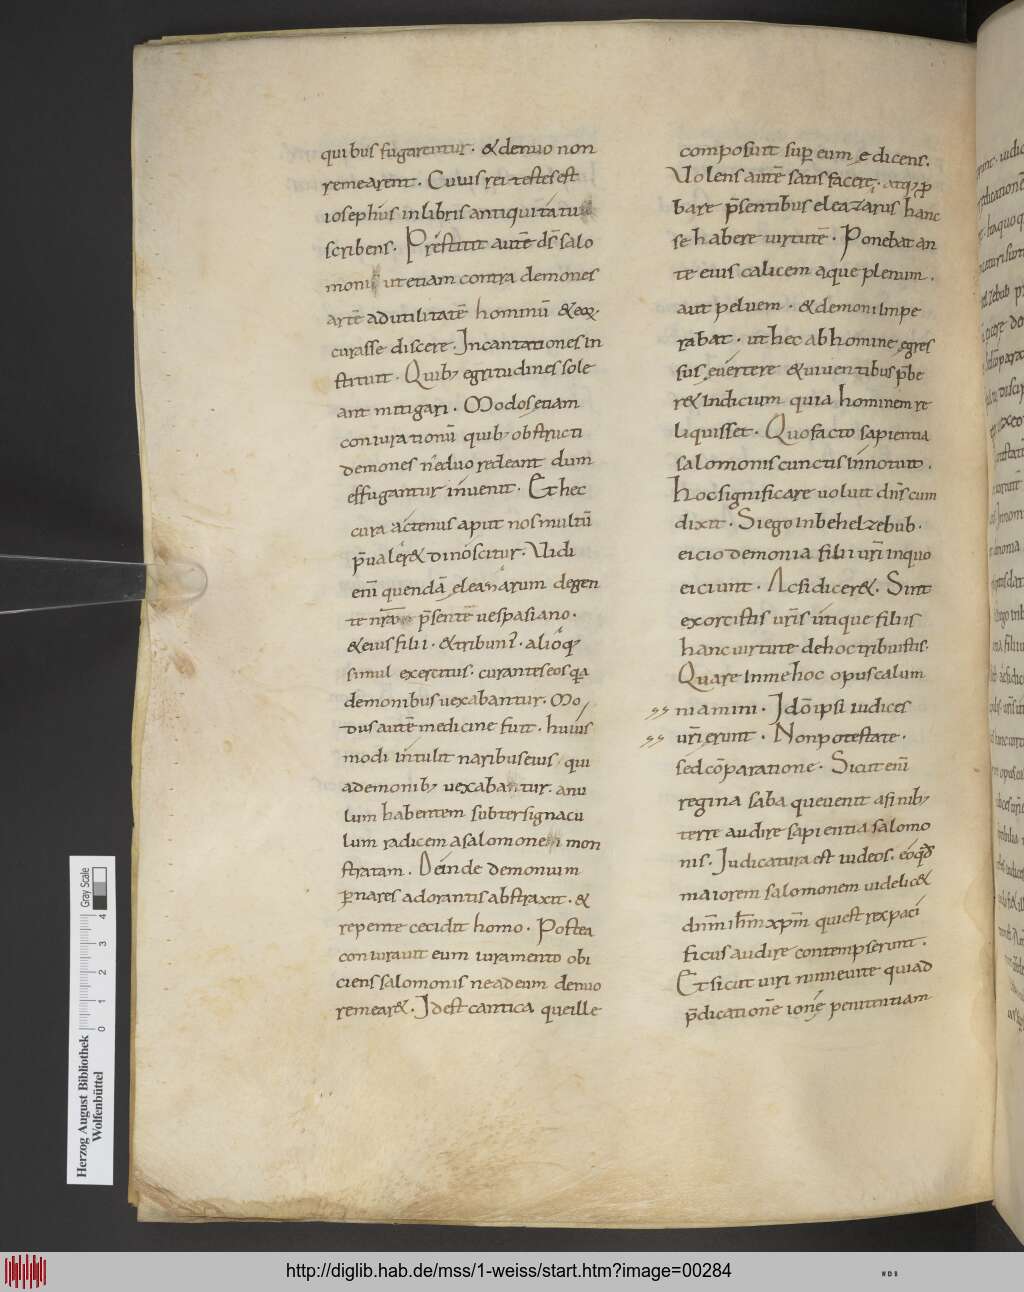 quibus fugarentur. & denuo non
remearent. Cuius rei testes est
iosephus in libris antiquitatu
scribens. Prestitit autē ds̄ salo
moni ut etiam contra demones
artē ad utilitatē hominū & eoꝝ
curasse discere. Incantationes in
stituit. Quibꝫ egritudines sole
ant mitigari. Modos etiam
coniurationū quibꝫ obstructi
demones ne denuo redeant dum
effugantur inuenit. Et hec
cura actenus aput nos multū
p̄ualer& dinoscitur. Uidi
eni̅ quendā eleazarum degen
te nr̄a p̄sentē uespasiano.
& eius filii. & tribuni. alioꝝq
simul exercitus. curantes eos qa
demonibus uexabantur. Mo
dus autē medicine fuit. huius
modi intulit naribus eius qui
a demonibꝫ uexabantur. anu
lum habentem subter signacu
lum radicem a salomone mon
stratam. Deinde demonium
ꝑ nares adorantis abstraxit. &
repente cecidit homo. Postea
coniurauit eum iuramento obi
ciens salomonis ne ad eum denuo
remear&. Idest cantica que ille
composuit suꝑ eum edicens.
Uolens autē satisfacere. atqꝫ ꝓ
bare p̄sentibus eleazarus hanc
se habere uirtutē. Ponebat an
te eius calicem aque plenum.
aut peluem. & demoni impe
rabat. ut hec ab homine egres
sus euertere & uiuentibus p̄be
r& indicium quia hominem re
liquisset. Quo facto sapientia
salomonis cunctis innotuit.
Hoc significare uoluit dn̄s cum
dixit. Si ego in behelzebub.
eicio demonia filii ur̄i in quo
eiciunt. Ac si dicer&. Sint
exorcistis ur̄is utique filiis
hanc uirtute de hoc tribuistis.
Quare in me hoc opus calum
niamini. Ido ipsi iudices
ur̄i erunt. Non potestate.
sed cōparatione. Sicut eni̅
regina saba que uenit a finibꝫ
terre audire sapientia salomo
nis. Iudicatura est iudeos. eo qd̄
maiorem salomonem uidelic&
dnm̄ ihm̄ xpm̄ qui est rex paci
ficus audire contempserunt.
Et sicut uiri nineuite qui ad
p̄dicationē ione penitentiam
Herzog August Bibliothek
Wolfenbüttel
Gray Scale
0 1 2 3 4
http://diglib.hab.de/mss/1-weiss/start.htm?image=00284